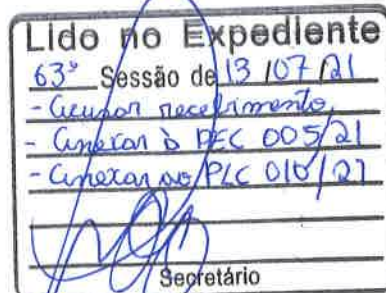 Lido no Expediente
63ª Sessão de 13/07/21
- Acusar recebimento
- Anexar à PEC 005/21
- Anexar ao PLC 010/21
Secretário